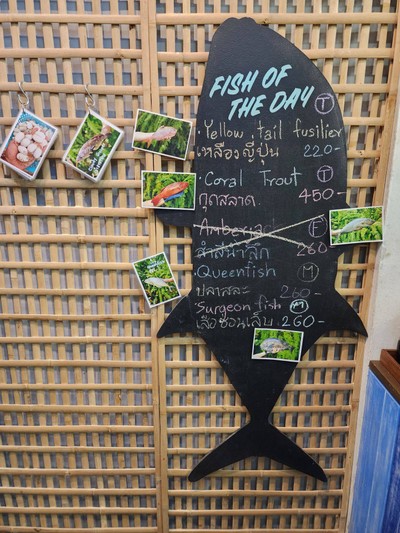 FISH OF
THE DAY T
· Yellow tail fusilier
เหลืองญี่ปุ่น 220-
· Coral Trout T
กุดสลาด. 450-
Amberjack F
สำลีน้ำลึก 260
· Queenfish M
ปลาสละ 260-
· Surgeon fish M
เสือซ่อนเล็บ. 260-